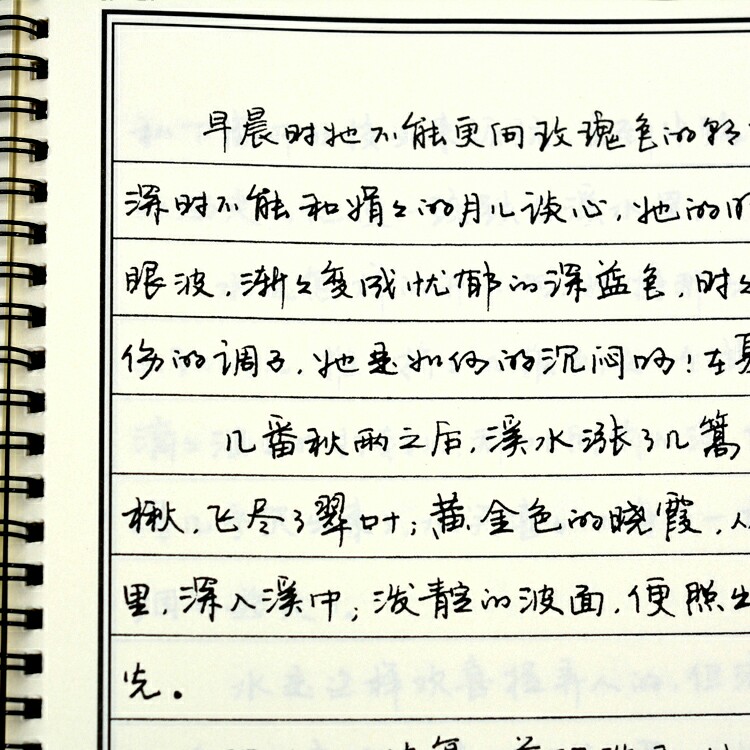 早晨时她不能更向玫瑰色的
深时不能和娟々的月儿谈心，她的
眼波，渐々变成忧郁的深蓝色，时
伤的调子，她是如何的沉闷呀！在夏
几番秋雨之后，溪水涨了几篙
楸，飞尽了翠叶；黄金色的晓霞，从
里，深入溪中；泼靛的波面，便照出
光。